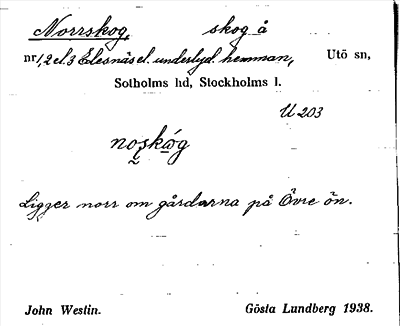 Norrskog, skog å
nr 1, 2 el. 3 Edesnäs el. underlyd. hemman, Utö sn,
Sotholms hd, Stockholms l.
U 203
noskóg
Ligger norr om gårdarna på Övre ön.
John Westin. Gösta Lundberg 1938.